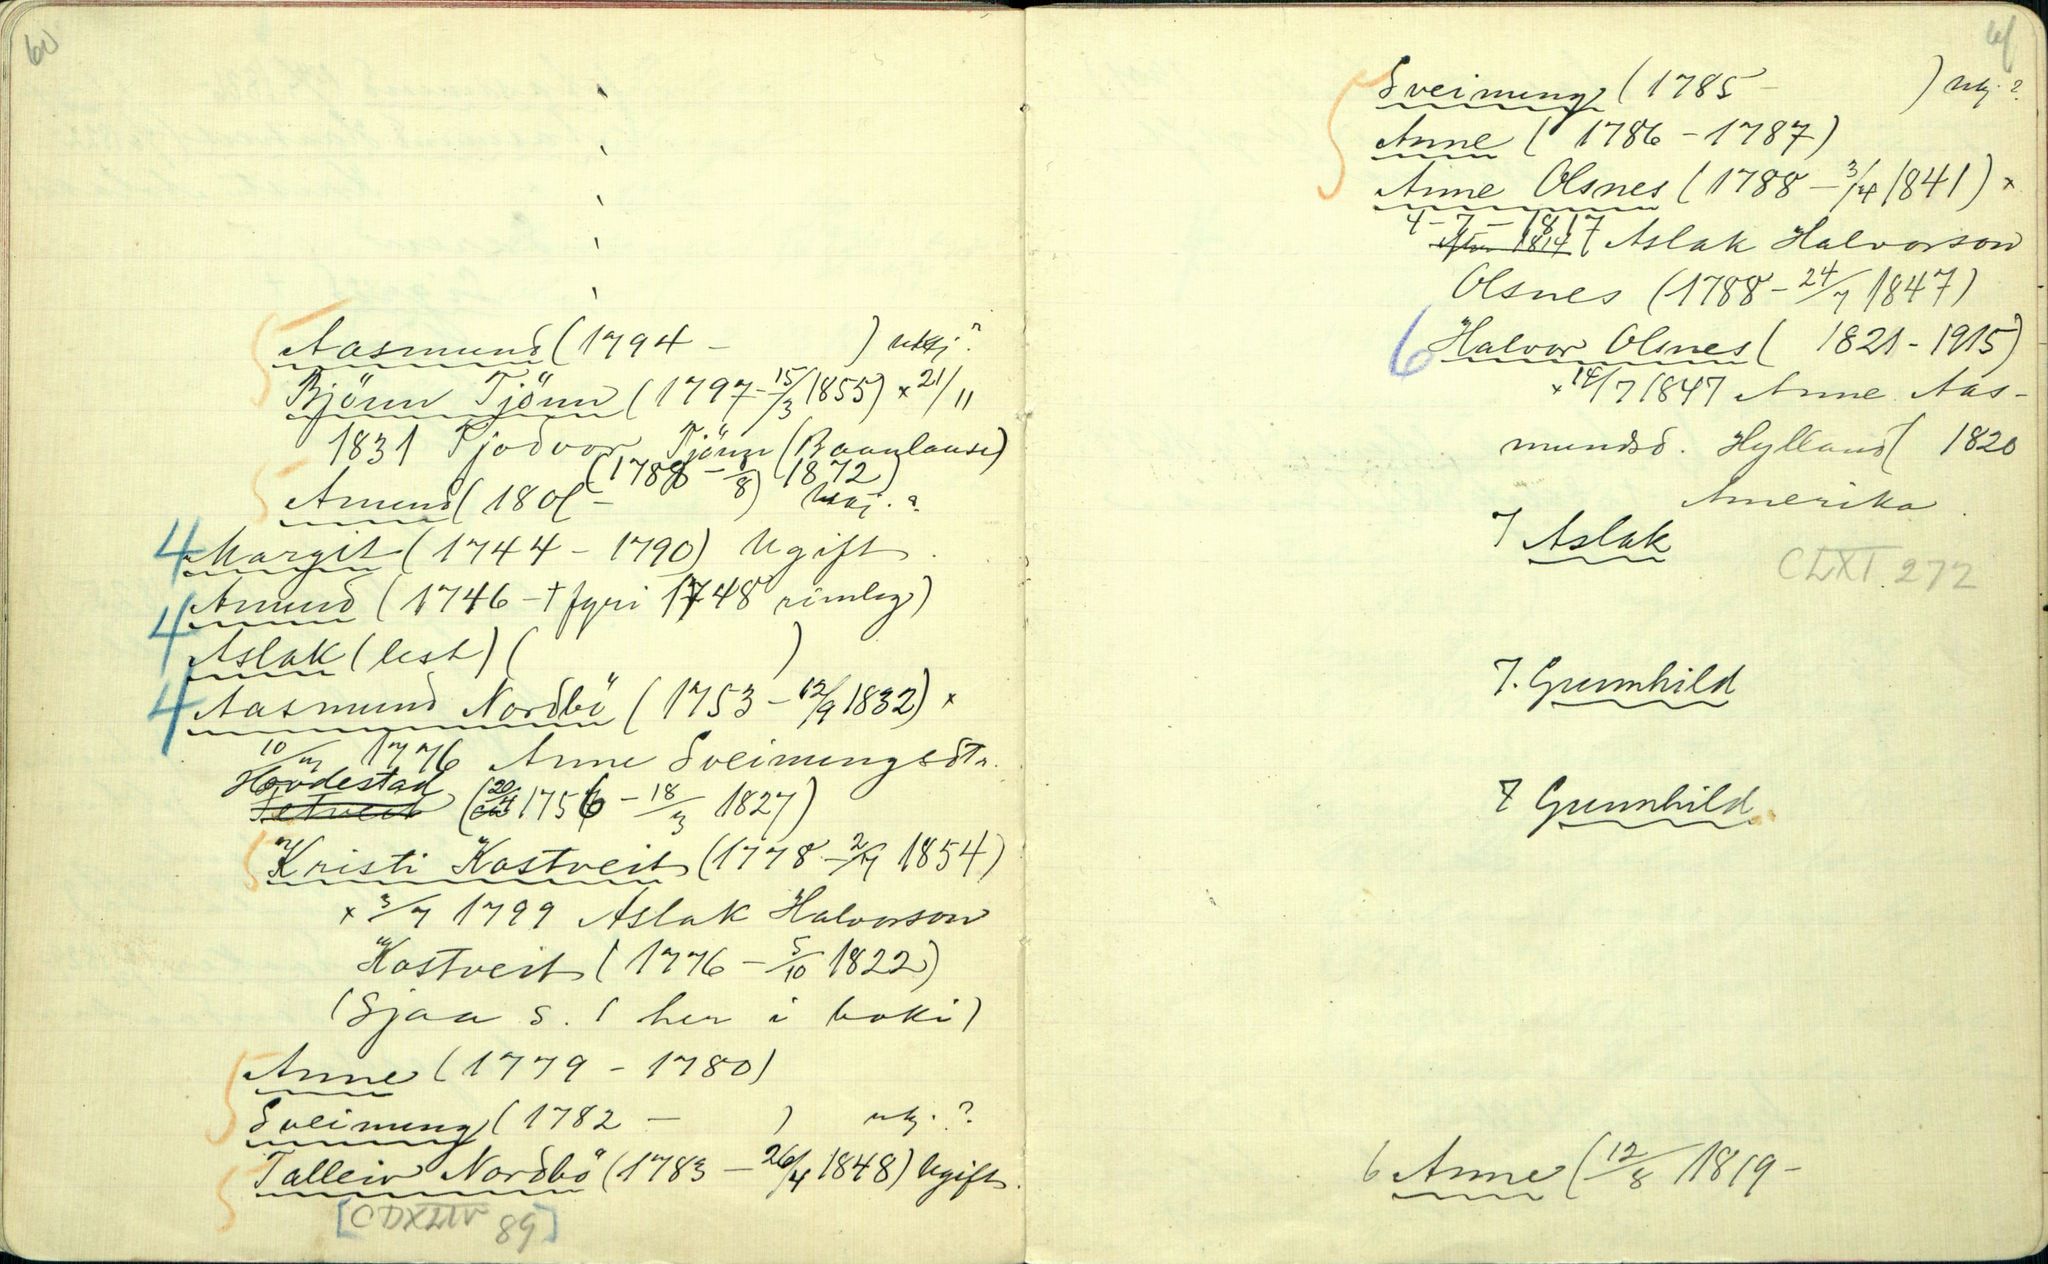 60
Aasmund (1794 – ) ukj?
Björn Tjönn (1797 – 15/3 1855) × 21/11
1831 Tjodvor Tjönn (Baanlaase)
(1788 – 1/8 1872)
Amund (1801 – ) ukj. ?
4 Margit (1744 – 1790) Ugift.
4 Amund (1746 – † fyri 1748 rimleg)
4 Aslak (lest) ( )
4 Aasmund Nordbö (1753 – 12/9 1832) ×
10/7 1776 Anne Sveinungsdtr.
Hovdestad
(20/4 1756 – 18/3 1827)
5 Kristi Kostveit (1778 – 2/9 1854)
× 3/7 1799 Aslak Halvorson
Kostveit (1776 – 5/10 1822)
(Sjaa s. 1 her i boki)
5 Anne (1779 – 1780)
Sveinung (1782 – ) ukj. ?
5 Talleiv Nordbö (1783 – 26/4 1848) Ugift.
[CDXLIV 89]
61
5 Sveinung (1785 – ) ukj. ?
Anne (1786 – 1787)
Anne Olsnes (1788 – 3/4 1841) ×
4 – 7 – 1817
efter 1814 Aslak Halvorson
Olsnes (1788 – 24/7 1847)
6 Halvor Olsnes (1821 – 1915)
× 14/7 1847 Anne Aas-
mundsd. Hylland (1820
Amerika
7 Aslak
CLXI 272
7. Gunnhild
7 Gunnhild
6 Anne (12/8 1819 –